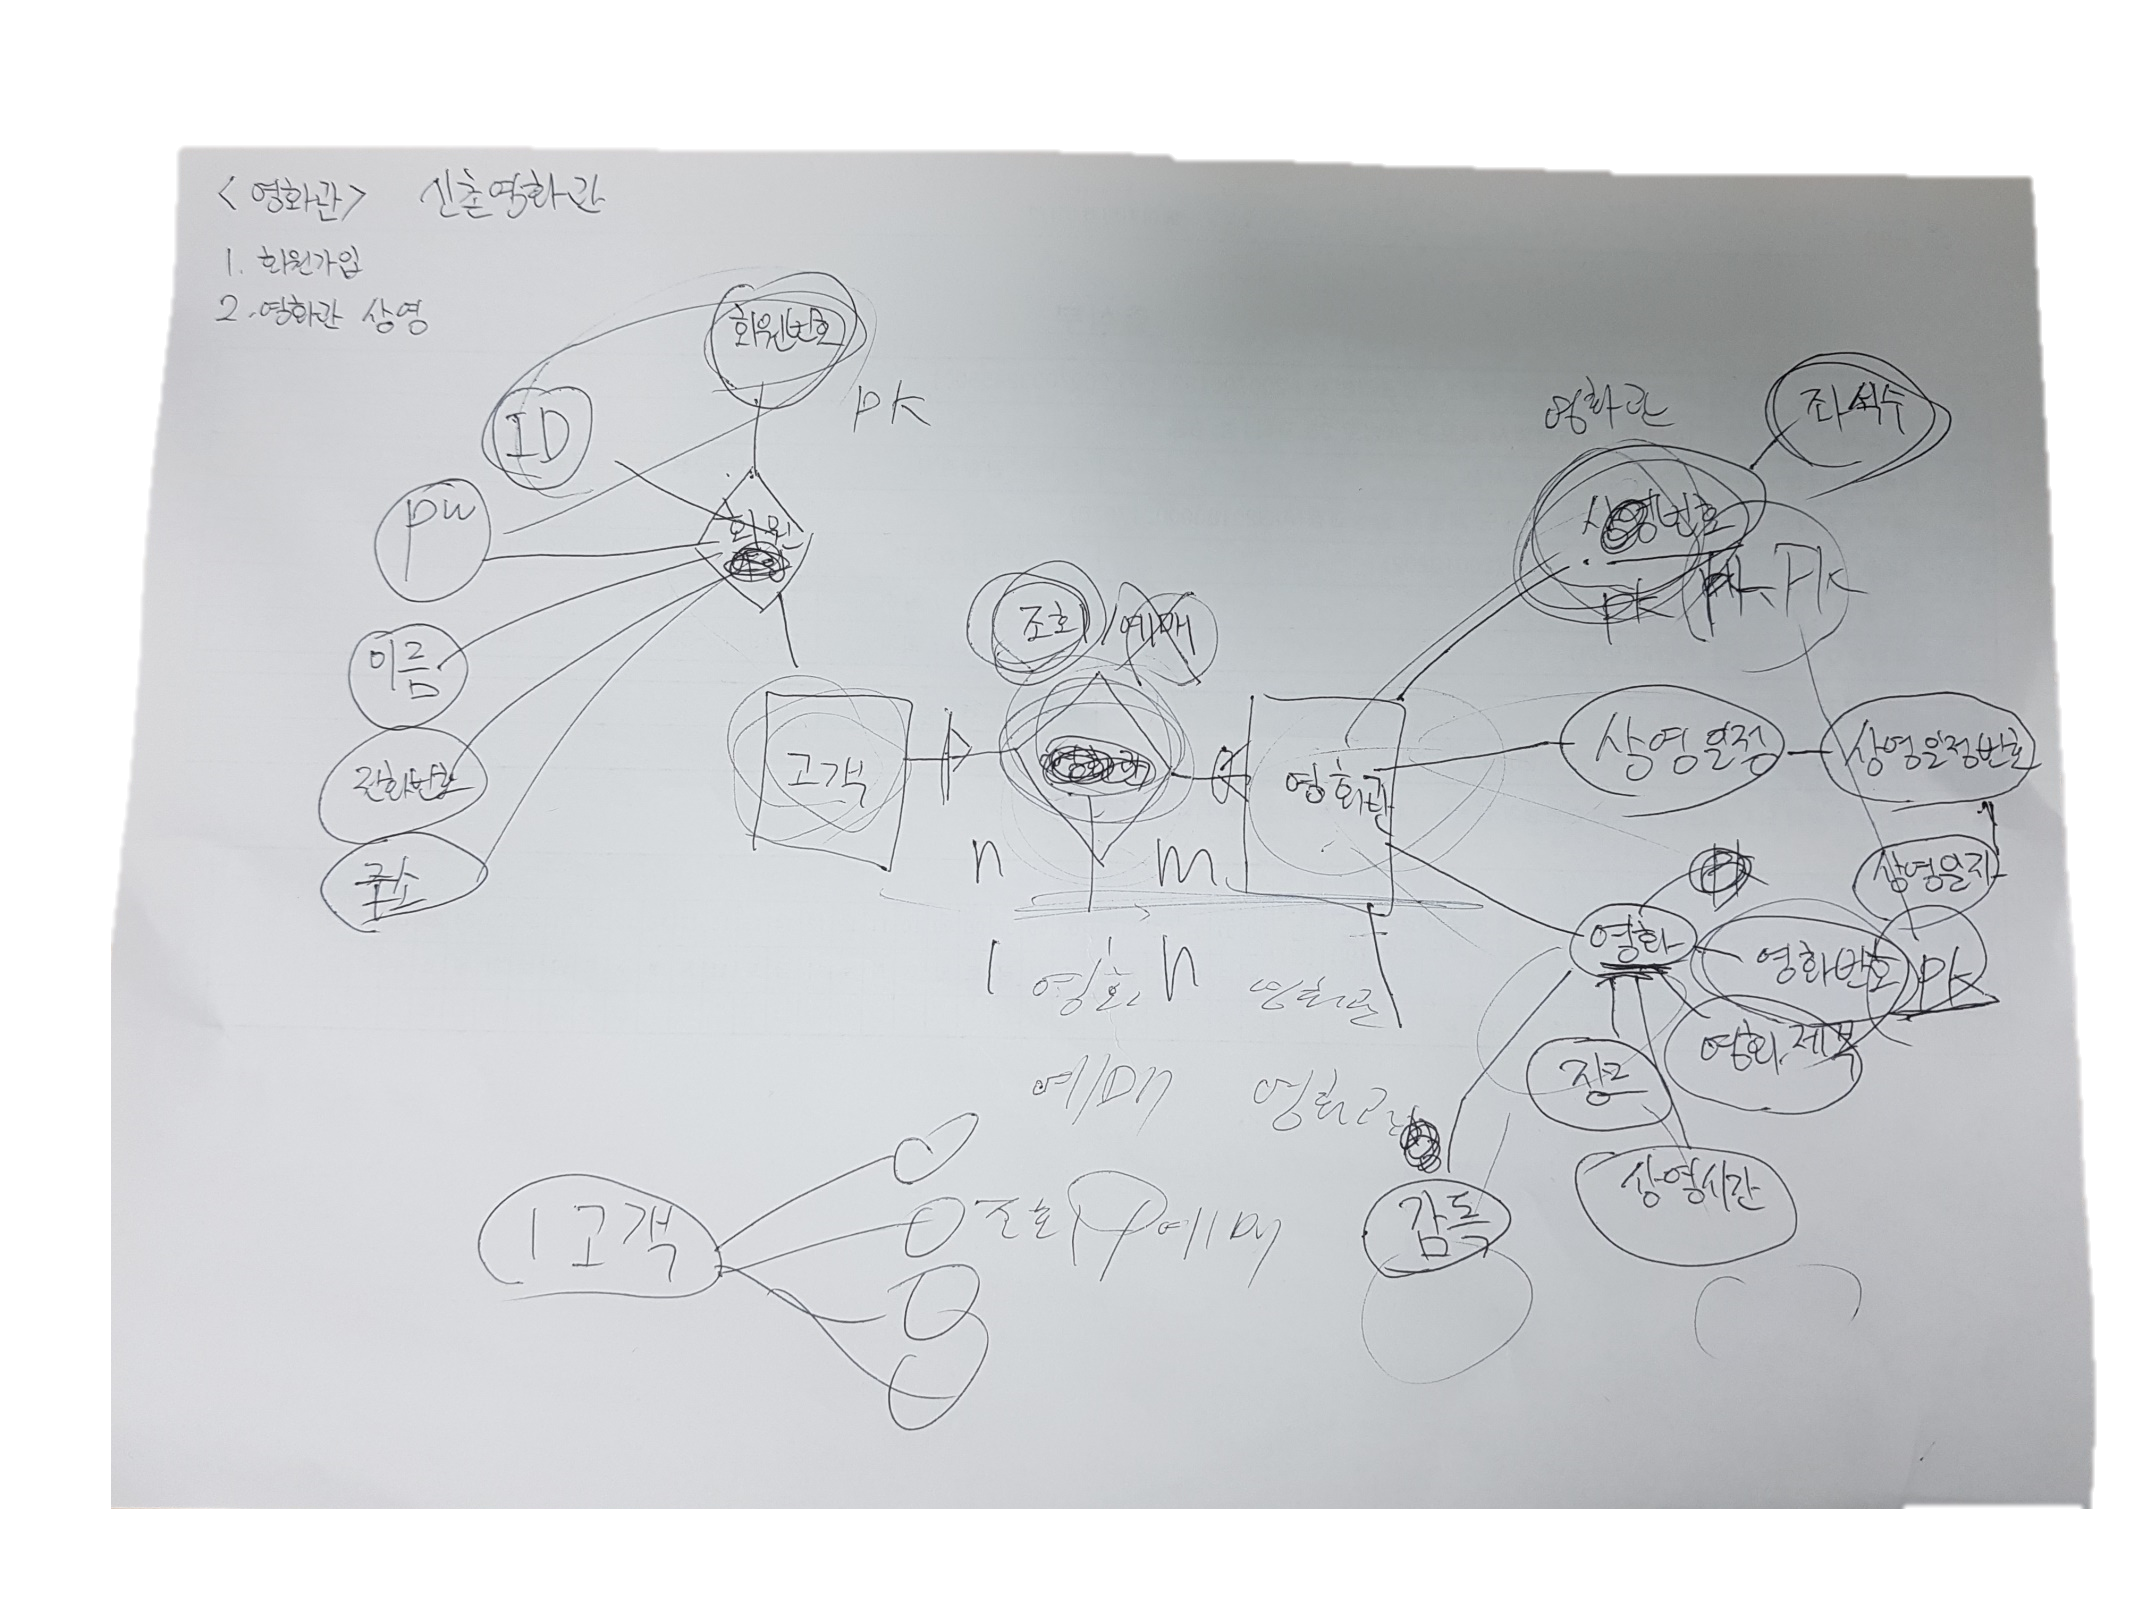 <영화관> 신촌영화관
1. 회원가입
2. 영화관 상영
회원번호
PK
ID
PW
회원
이름
전화번호
주소
고객
조회/예매
n
m
1
n
영화
영화관
영화관
좌석수
PK
PK
상영일정
상영일정번호
상영일자
영화
영화번호
PK
영화제목
장르
상영시간
감독
예매
영화관
1 고객
조회
예매